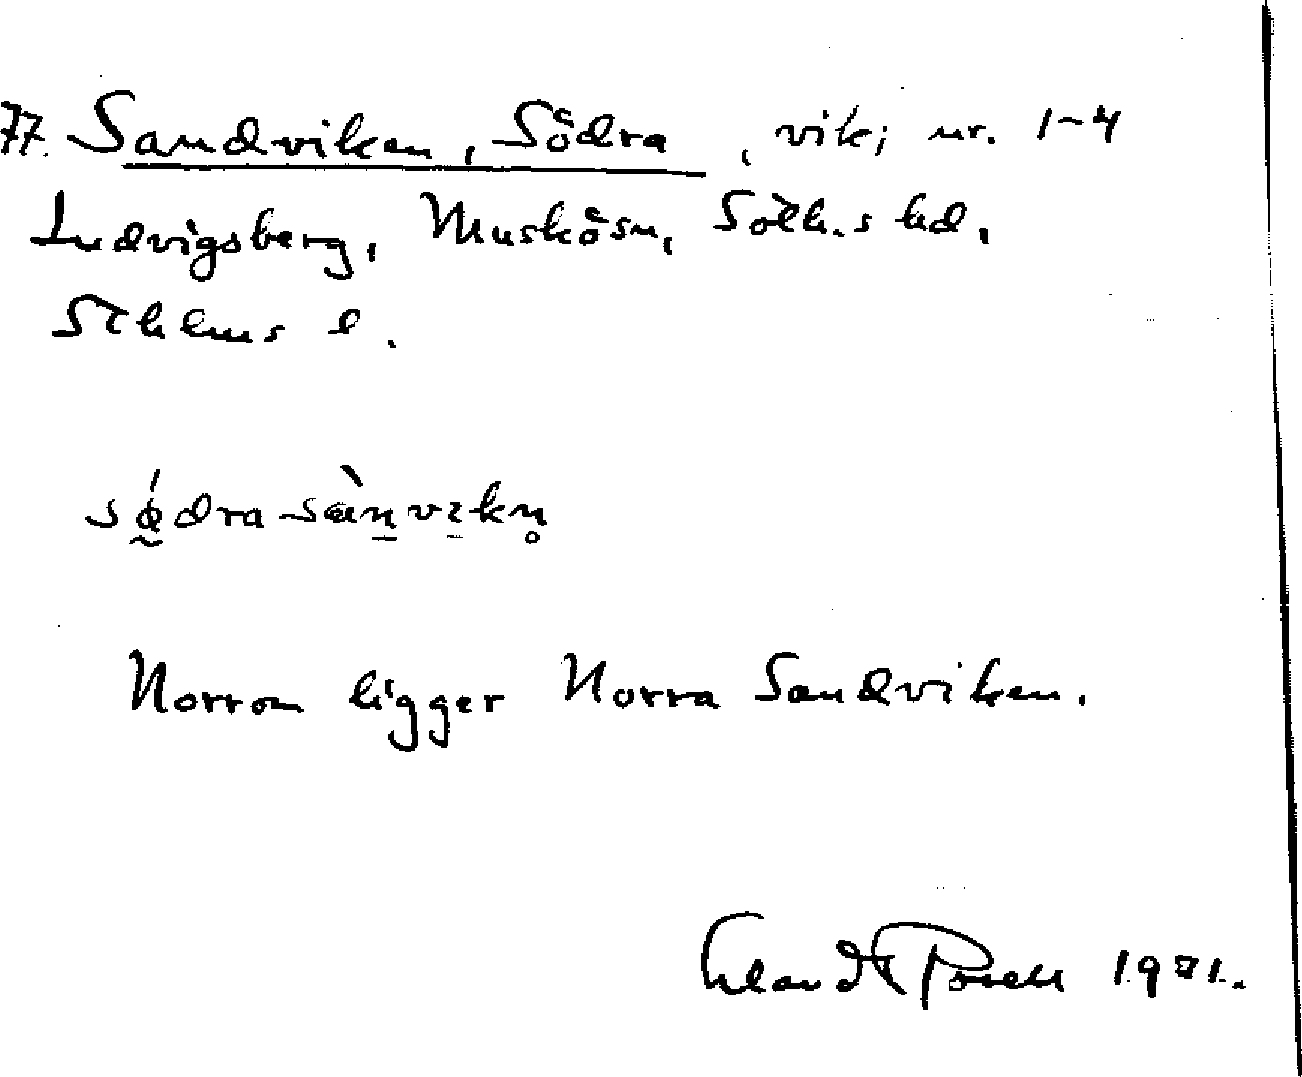 77. Sandviken, Södra, vik; nr. 1-4
Ludvigsberg, Muskö sn, Sotholms hd,
Sthlms l.
södra sànvikn̥
Norrom ligger Norra Sandviken.
1971.